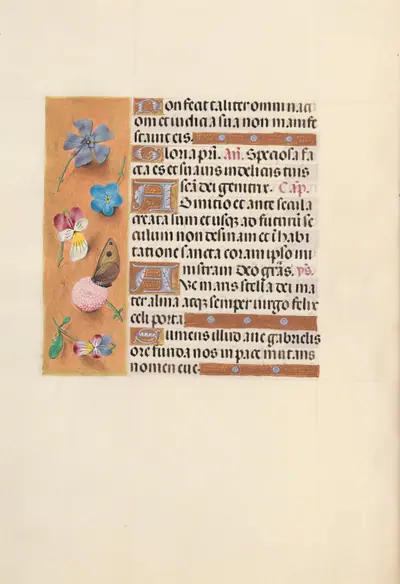 Non fecit taliter omni naci
oni et iudicia sua non manife
stauit eis.
Gloria pri. An. Speciosa fa
cta es et suauis in deliciis tuis
scā dei genitrix. Cap.
Ab initio et ante secula
creata sum et usqz ad futurū se
culum non desinam et ī habi
tatione sancta coram ipso mi
nistraui. Deo grās. ỹs.
Aue maris stella dei ma
ter alma atqz semper uirgo felix
celi porta
Sumens illud aue gabrielis
ore funda nos in pace mutans
nomen eue.